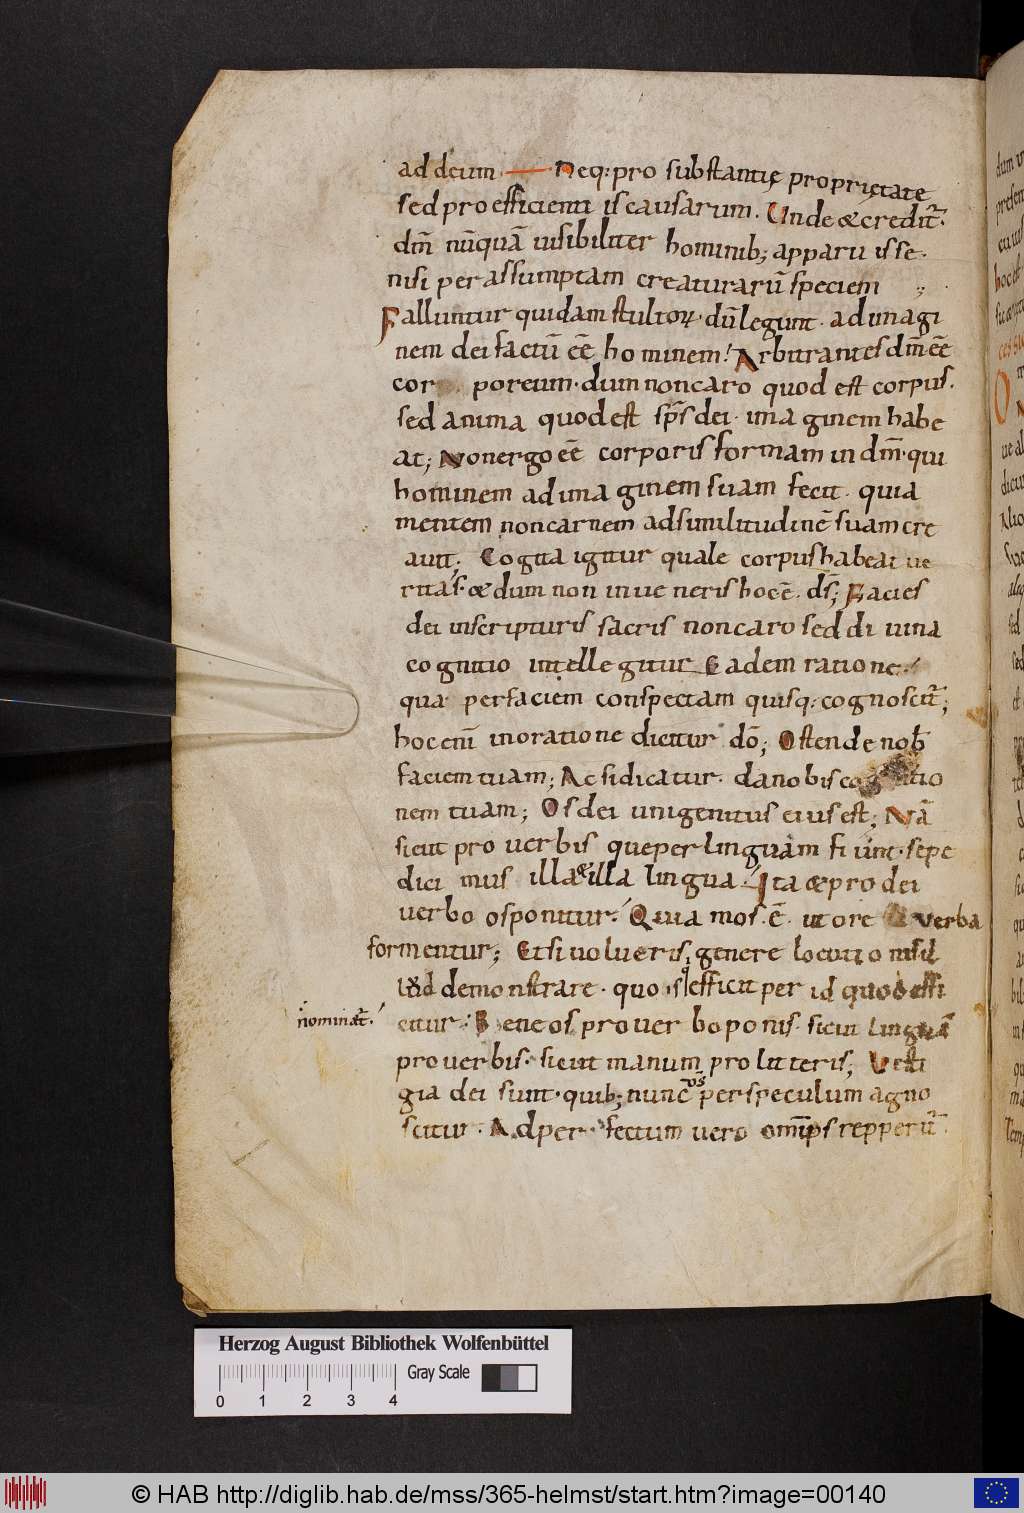 ad deum · Neq: pro substantię proprięt&ate
sed pro efficienti is causarum. Unde & credit̄·
dm̄ nūquā uisibiliter hominib; apparuisse·
nisi per assumptam creaturarū speciem
Falluntur quidam stultoꝝ· dū legunt· ad imagi
nem dei factū eē hominem! Arbitrantes dm̄ eē
cor poreum· dum non caro quod est corpus.
sed anima quod est sps̄ dei· imaginem habe
at; Non ergo eē corporis formam in dm̄· qui
hominem ad imaginem suam fecit· quia
mentem non carnem ad similitudinē suam cre
auit; Cogita igitur quale corpus habeat ue
ritas· & dum non inueneris hoc ē· ds̄; Facies
dei in scripturis sacris non caro sed diuina
cognitio intellegitur Eadem ratione·
qua per faciem conspectam quisq: cognoscit̄;
hoc enī in oratione dicitur dō; Ostende nob̄
faciem tuam; Ac si dicatur· da nobis cog itio
nem tuam; Os dei unigenitus eius est; Nā
sicut pro uerbis que per linguam fiunt· sepe
dicimus illa & illa lingua· Ita & pro dei
uerbo os ponitur· Qua mos· ē· ut ore uerba
formentur; Et si uolueris· genere locutionis il
lud demonstrare· quo is qi efficit per id quod effi
nominat̄·
citur· Bene os pro uerbo ponis· sicut linguā
pro uerbis· sicut manum pro litteris; Uesti
gia dei sunt· quib; nunc ds̄ per speculum agno
scitur· Ad perfectum uero omīps repperit̄·
Herzog August Bibliothek Wolfenbüttel
Gray Scale
0 1 2 3 4
© HAB http://diglib.hab.de/mss/365-helmst/start.htm?image=00140